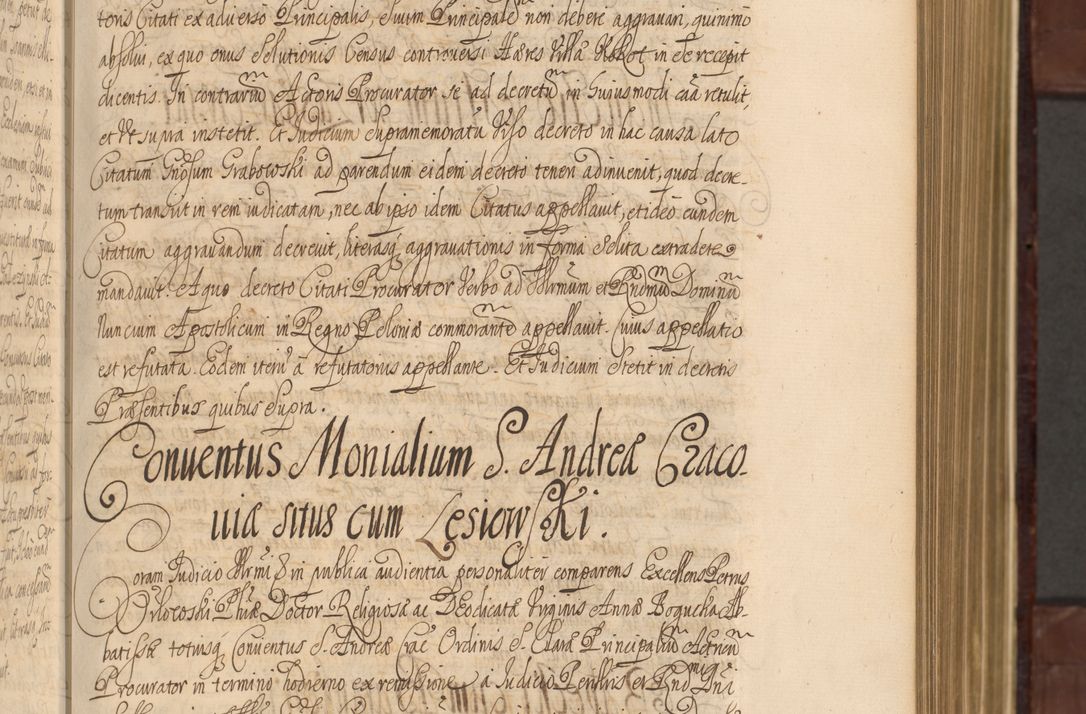 toris Citati ex aduerso Principalis, suum Principalē non debere aggrauari, quinimo
absolui, ex quo onus solutionis Census controuersi Hæres Villæ Rokot in se recepit
dicentis. In contrariū Actoris Procurator se ad decretū in huiusmodi cāa retulit,
et Vt supra institit. Et Iudicium supramemoratū Viso decreto in hac causa lato
Citatum Gnōsum Grabowski ad parendum eidem decreto teneri adinuenit, quod decre-
tum transiit in rem iudicatam, nec ab ipso idem Citatus appellauit, et ideo eundem
Citatum aggrauandum decreuit, literasq aggrauationis in forma solita extradere
mandauit. A quo decreto Citati Procurator Verbo ad Illrm̄um et Rndm̄um Dominū
Nuncium Apostolicum in Regno Poloniæ commorantē appellauit. Cuius appellatio
est refutata. Eodem iterū à refutatoriis appellante. Et Iudicium stetit in decretis
Præsentibus quibus supra.
Conuentus Monialium S. Andreæ Craco-
uiæ situs cum Lesiowski.
Coram Iudicio Illrm̄i & in publica audientia personaliter comparens Excellens Petrus
Orłowski Phiæ Doctor Religiosæ ac DEodicatæ Virginis Annæ Bogucka Ab-
batissæ totiusq Conuentus S. Andreæ Crac Ordinis S. Claræ Principaliū Actricū
Procurator in termino hodierno ex remissione a Iudicio Perillris et Rnd Dn̄i